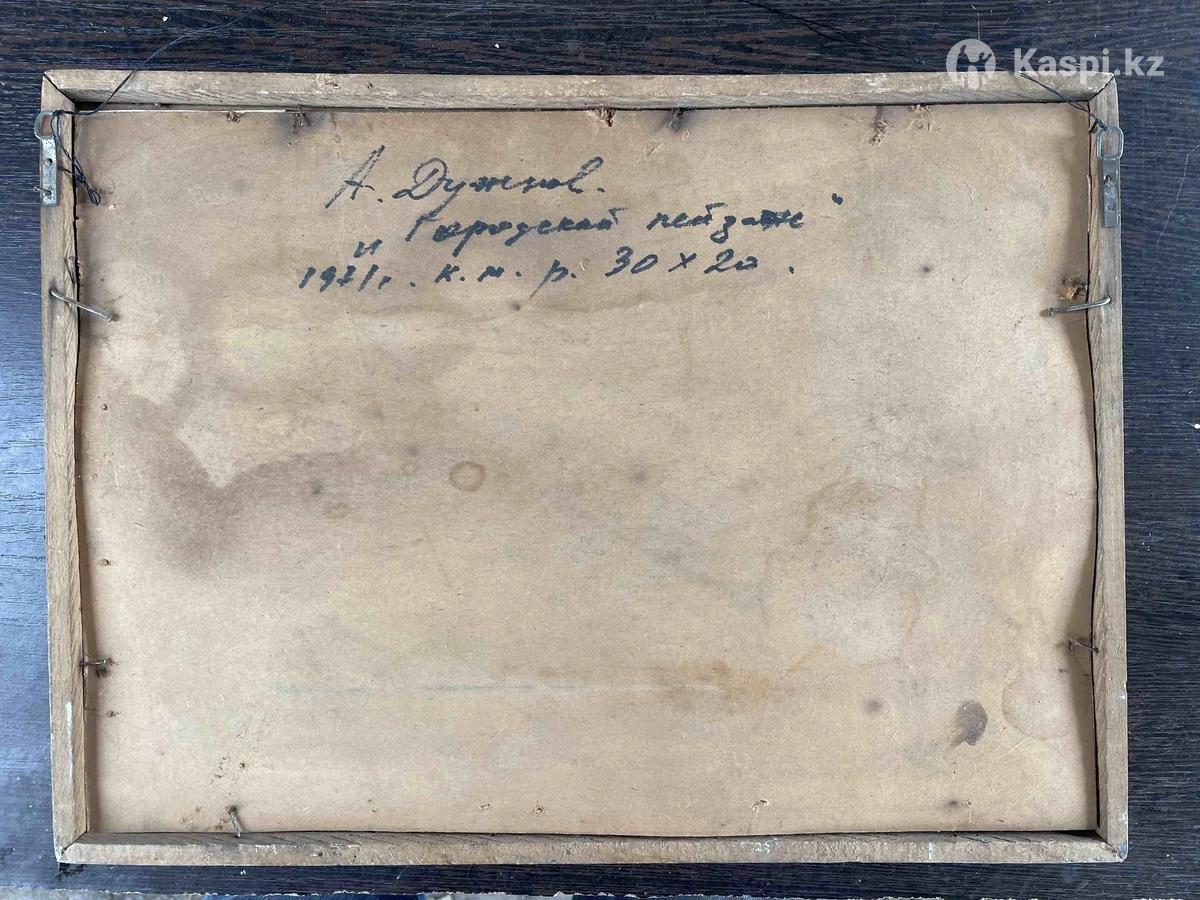 Kaspi.kz
А. Дужнов.
"Городской пейзаж"
1971г. к. м. р. 30 x 20.